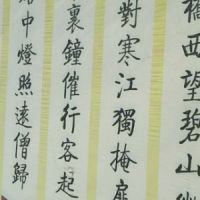 橋西望碧山
對寒江獨掩扉
裏鐘催行客起
中燈照遠僧歸